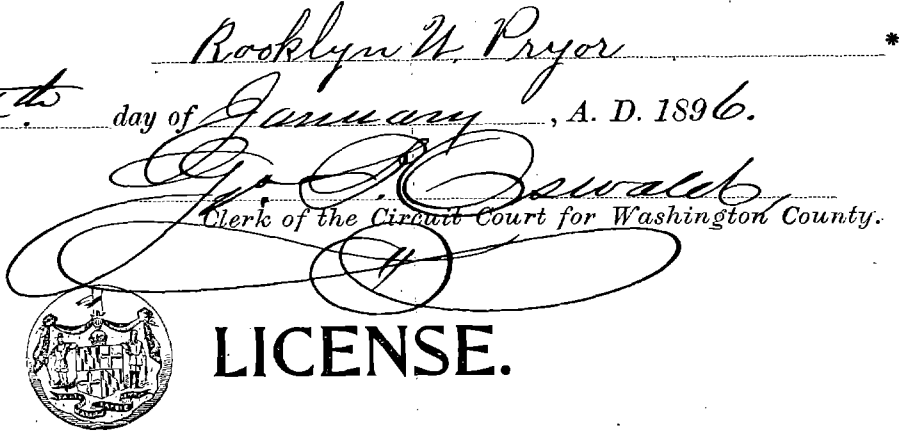 Rooklyn W. Pryor *
th day of January, A. D. 1896.
Geo. B. Oswald
Clerk of the Circuit Court for Washington County.
LICENSE.